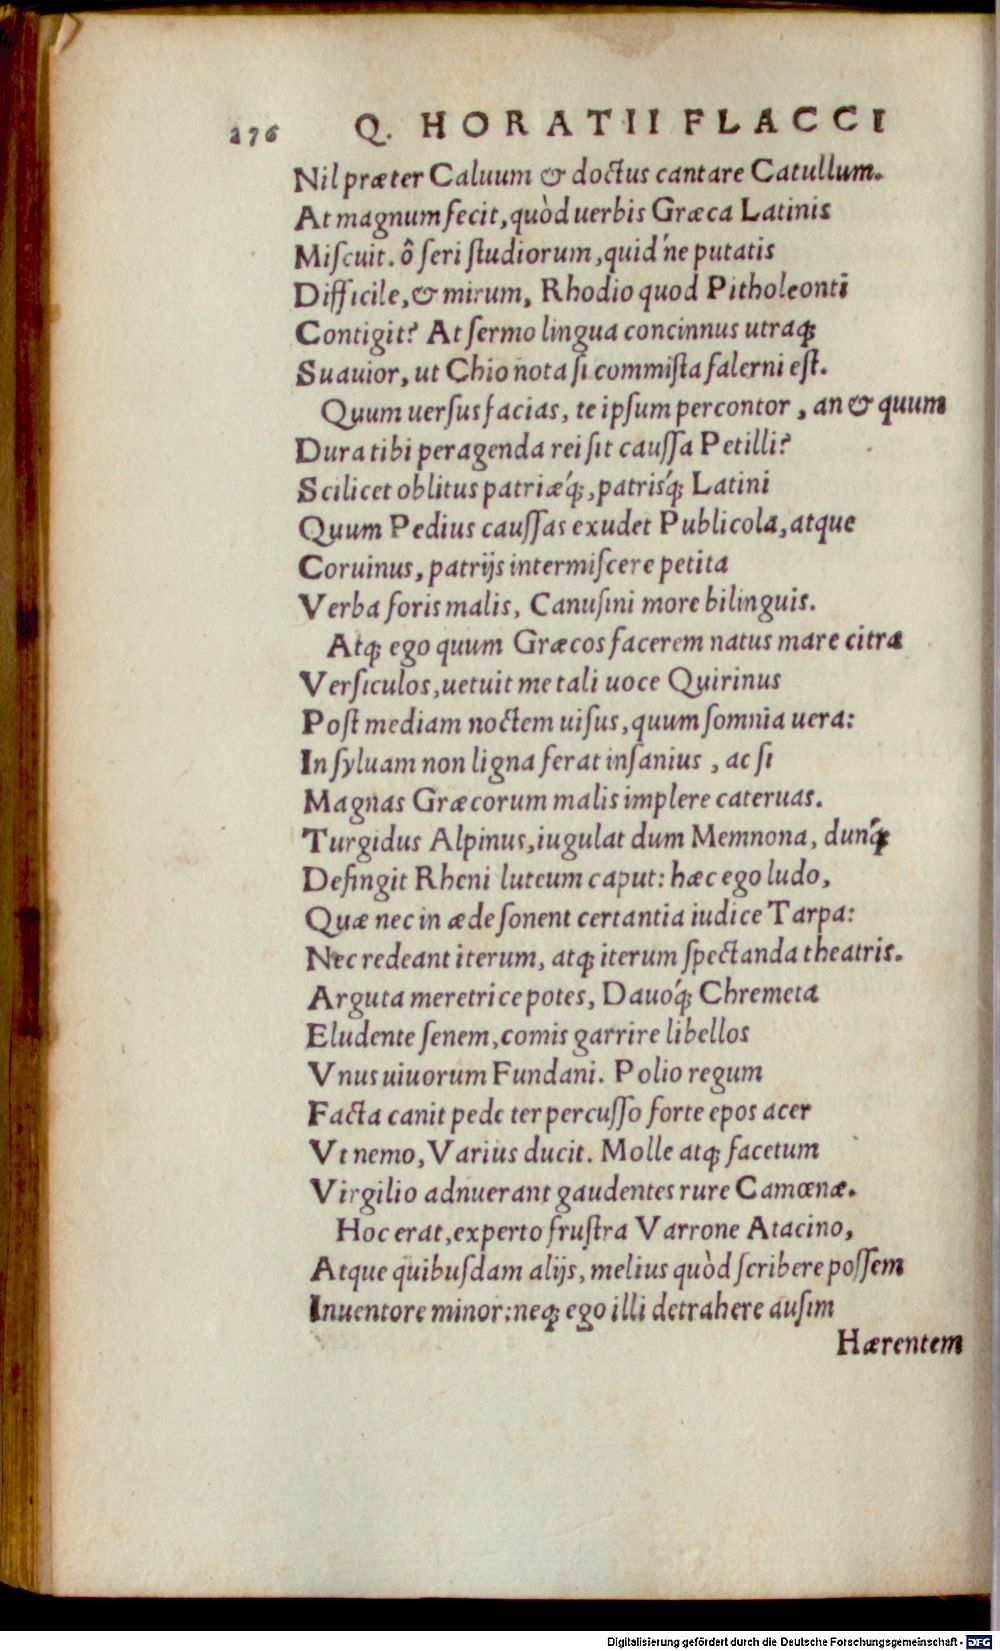 276 Q. HORATII FLACCI
Nil præter Caluum & doctus cantare Catullum.
At magnum fecit, quòd uerbis Græca Latinis
Miſcuit. ô ſeri ſtudiorum, quid'ne putatis
Difficile, & mirum, Rhodio quod Pitholeonti
Contigit? At ſermo lingua concinnus utraq;
Suauior, ut Chio nota ſi commiſta falerni eſt.
Quum uerſus facias, te ipſum percontor, an & quum
Dura tibi peragenda rei ſit cauſſa Petilli?
Scilicet oblitus patriæ'q;, patris'q; Latini
Quum Pedius cauſſas exudet Publicola, atque
Coruinus, patrijs intermiſcere petita
Verba foris malis, Canuſini more bilinguis.
Atq; ego quum Græcos facerem natus mare citra
Verſiculos, uetuit me tali uoce Quirinus
Poſt mediam noctem uiſus, quum ſomnia uera:
In ſyluam non ligna ferat inſanius, ac ſi
Magnas Græcorum malis implere cateruas.
Turgidus Alpinus, iugulat dum Memnona, dun'q;
Defingit Rheni luteum caput: hæc ego ludo,
Quæ nec in æde ſonent certantia iudice Tarpa:
Nec redeant iterum, atq; iterum ſpectanda theatris.
Arguta meretrice potes, Dauo'q; Chremeta
Eludente ſenem, comis garrire libellos
Vnus uiuorum Fundani. Polio regum
Facta canit pede ter percuſſo forte epos acer
Vt nemo, Varius ducit. Molle atq; facetum
Virgilio adnuerant gaudentes rure Camœnæ.
Hoc erat, experto fruſtra Varrone Atacino,
Atque quibuſdam alijs, melius quòd ſcribere poſſem
Inuentore minor: neq; ego illi detrahere auſim
Hærentem
Digitalisierung gefördert durch die Deutsche Forschungsgemeinschaft - DFG